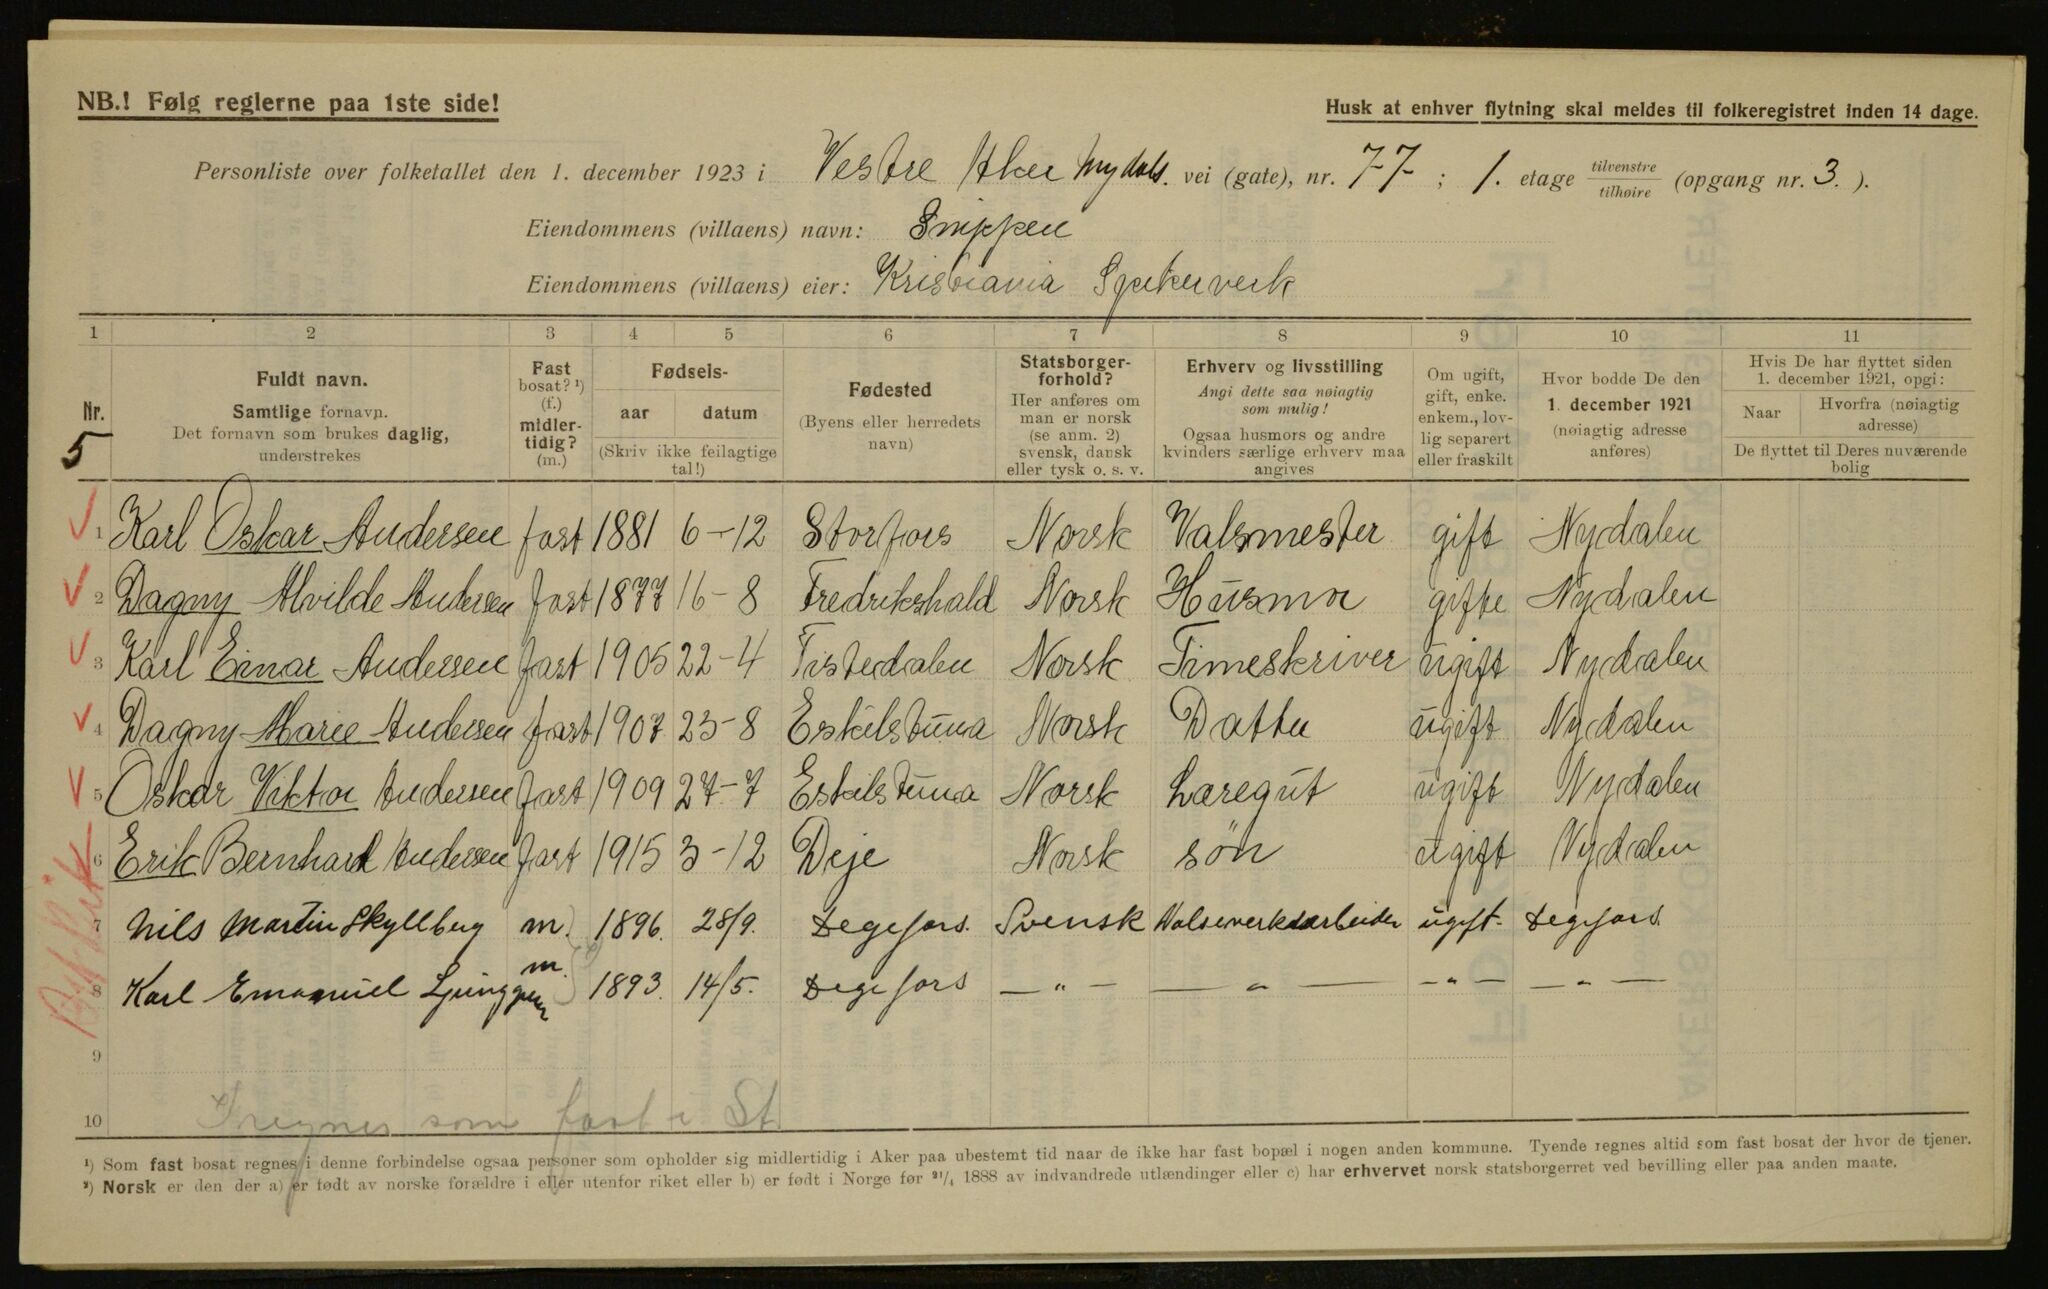 NB.! Følg reglerne paa 1ste side!
Husk at enhver flytning skal meldes til folkeregistret inden 14 dage.
Personliste over folketallet den 1. december 1923 i Vestre Aker Nydals. vei (gate), nr. 77 ; 1. etage tilvenstre tilhøire (opgang nr. 3. ).
Eiendommens (villaens) navn: Snippen
Eiendommens (villaens) eier: Kristiania Spikerverk
1 2 3 4 5 6 7 8 9 10 11
Nr. 5
Fuldt navn.
Samtlige fornavn.
Det fornavn som brukes daglig,
understrekes
Fast
bosat? ¹)
(f.)
midler-
tidig?
(m.)
Fødsels-
aar datum
(Skriv ikke feilagtige
tal!)
Fødested
(Byens eller herredets
navn)
Statsborger-
forhold?
Her anføres om
man er norsk
(se anm. 2)
svensk, dansk
eller tysk o. s. v.
Erhverv og livsstilling
Angi dette saa nøiagtig
som mulig!
Ogsaa husmors og andre
kvinders særlige erhverv maa
angives
Om ugift,
gift, enke.
enkem., lov-
lig separert
eller fraskilt
Hvor bodde De den
1. december 1921
(nøiagtig adresse
anføres)
Hvis De har flyttet siden
1. december 1921, opgi:
Naar
Hvorfra (nøiagtig
adresse)
De flyttet til Deres nuværende
bolig
1 Karl Oskar Andersen fast 1881 6-12 Storfors Norsk Valsmester gift Nydalen
2 Dagny Alvilde Andersen fast 1877 16-8 Fredrikshald Norsk Husmor gifte Nydalen
3 Karl Einar Andersen fast 1905 22-4 Tistedalen Norsk Timeskriver ugift Nydalen
4 Dagny Marie Andersen fast 1907 23-8 Eskilstuna Norsk Datter ugift Nydalen
5 Oskar Viktor Andersen fast 1909 27-7 Eskilstuna Norsk Læregut ugift Nydalen
6 Erik Bernhard Andersen fast 1915 3-12 Deje Norsk søn ugift Nydalen
7 Nils Martin Skyllberg m. 1896. 28/9. Degefors. Svensk Valseverksarbeider ugift- Degefors.
8 Karl Emanuel Ljunggren m. 1893. 14/5. Degefors — „ — — „ — — „ — — „ —
9
10 Iregnes som fast i St.
¹) Som fast bosat regnes i denne forbindelse ogsaa personer som opholder sig midlertidig i Aker paa ubestemt tid naar de ikke har fast bopæl i nogen anden kommune. Tyende regnes altid som fast bosat der hvor de tjener.
²) Norsk er den der a) er født av norske forældre i eller utenfor riket eller b) er født i Norge før ²¹/₄ 1888 av indvandrede utlændinger eller c) har erhvervet norsk statsborgerret ved bevilling eller paa anden maate.